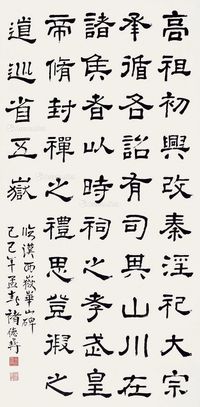 高祖初興改秦淫祀大宗
承循各詔有司其山川在
諸侯者以時祠之孝武皇
帝脩封禪之禮思登假之
道巡省五嶽
臨漢西嶽華山碑
己巳年孟春褚德彝